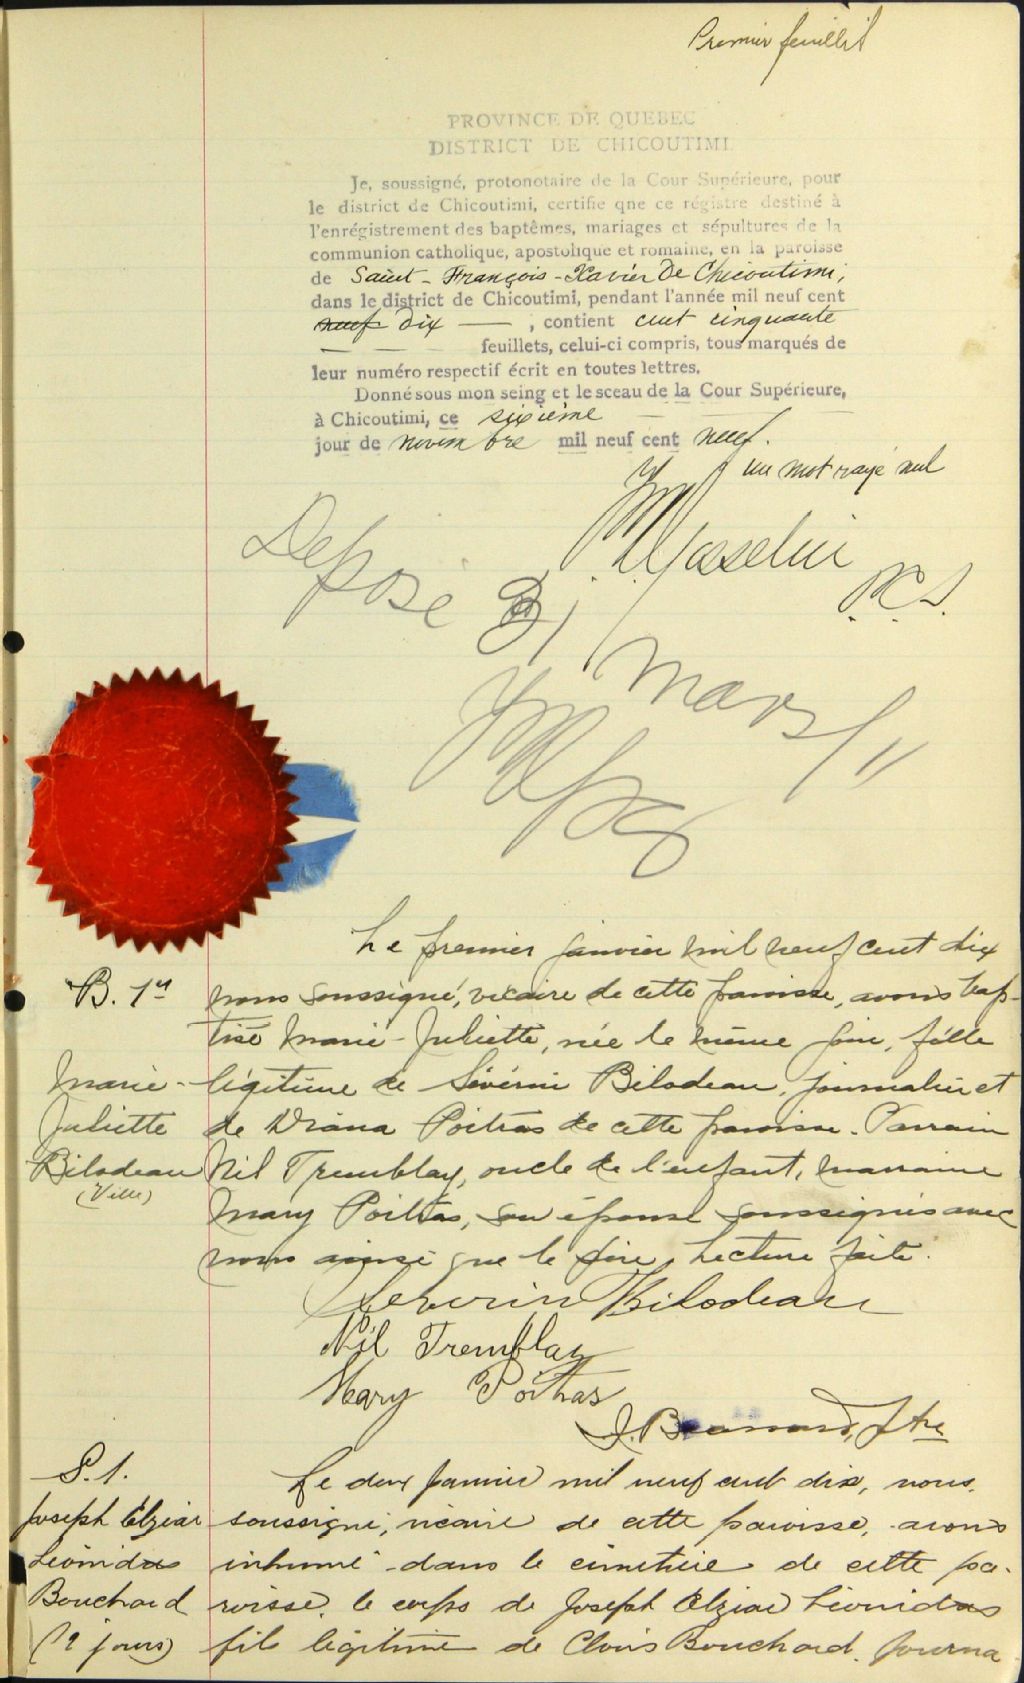 Premier feuillet
PROVINCE DE QUEBEC
DISTRICT DE CHICOUTIMI
Je, soussigné, protonotaire de la Cour Supérieure, pour
le district de Chicoutimi, certifie qne ce régistre destiné à
l'enrégistrement des baptêmes, mariages et sépultures de la
communion catholique, apostolique et romaine, en la paroisse
de Saint-François-Xavier de Chicoutimi,
dans le district de Chicoutimi, pendant l'année mil neuf cent
neuf dix — , contient cent cinquante
— — — feuillets, celui-ci compris, tous marqués de
leur numéro respectif écrit en toutes lettres.
Donné sous mon seing et le sceau de la Cour Supérieure,
à Chicoutimi, ce sixième
jour de novembre mil neuf cent neuf.
un mot rayé nul
P.C.S.
Déposé
31 Mars/11
Le premier janvier mil neuf cent dix
B. 1er
nous soussigné, vicaire de cette paroisse, avons bap-
tisé Marie-Juliette, née le même jour, fille
Marie-
légitime de Sévérin Bilodeau, journalier et
Juliette
de Diana Poitras de cette paroisse. Parrain
Bilodeau
Nil Tremblay, oncle de l'enfant, marraine
(Ville)
Mary Poitras, son épouse soussignés avec
nous ainsi que le père. Lecture faite.
Severin Bilodeau
Nil Tremblay
Mary Poitras
Ptre
S. 1.
Le deux janvier mil neuf cent dix, nous,
Joseph Elzéar
soussigné, vicaire de cette paroisse, avons
Léonidas
inhumé dans le cimetière de cette pa-
Bouchard
roisse, le corps de Joseph Elzéar Léonidas
jours)
fils légitime de Clovis Bouchard, journa